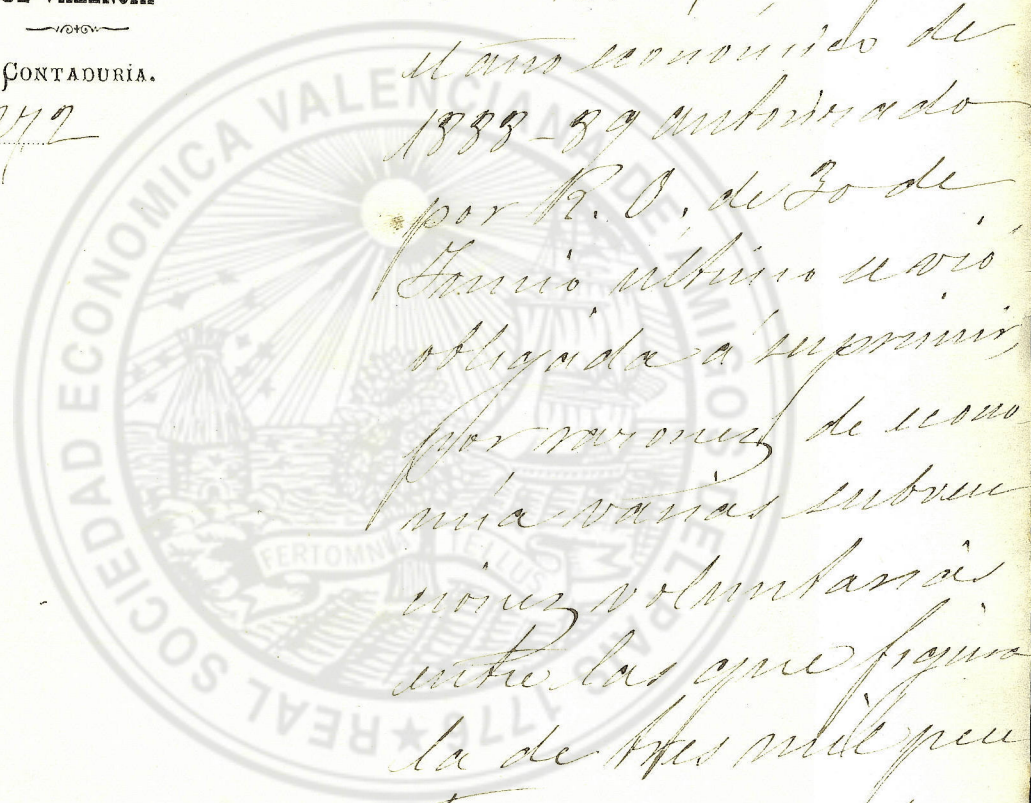 DE VALENCIA
CONTADURÍA.
272
el año económico de
1888-89 autorizado
por R. O. de 30 de
Junio último se vió
obligada á suprimir,
por razones de econo
mía varias subven
ciones voluntarias
entre las que figura
la de tres mil pese
REAL SOCIEDAD ECONOMICA VALENCIANA DE AMIGOS DEL PAIS
1776
FERT OMNIA TELLUS